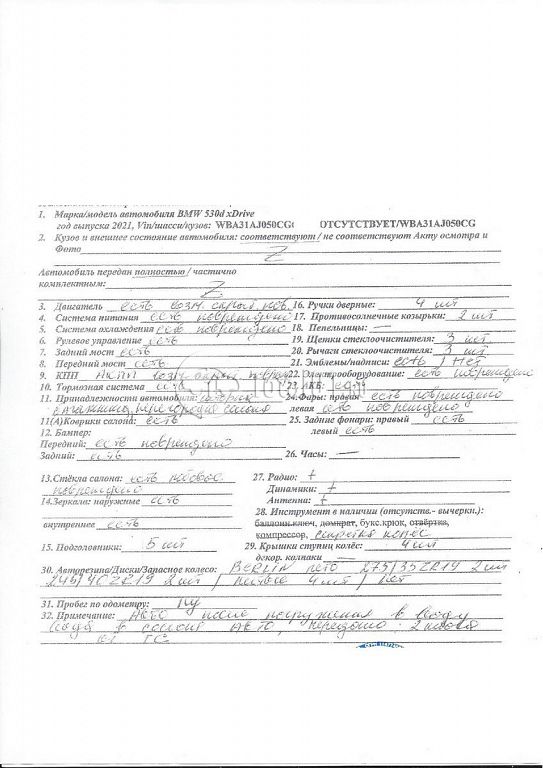 1. Марка/модель автомобиля BMW 530d xDrive
год выпуска 2021, Vin/шасси/кузов: WBA31AJ050CG ОТСУТСТВУЕТ/WBA31AJ050CG
2. Кузов и внешнее состояние автомобиля: соответствуют / не соответствуют Акту осмотра и
Фото Z
Автомобиль передан полностью / частично
комплектным: Z
3. Двигатель есть возм. скрыт. пов.
4. Система питания есть повреждено
5. Система охлаждения есть повреждено
6. Рулевое управление есть
7. Задний мост есть
8. Передний мост есть
9. КПП АКПП возм. скрыт. повреж
10. Тормозная система есть
11. Принадлежности автомобиля:
перегородка салона
11(А)Коврики салона: есть
12. Бампер:
Передний: есть повреждено
Задний: есть
16. Ручки дверные: 4 шт
17. Противосолнечные козырьки: 2 шт
18. Пепельницы: —
19. Щетки стеклоочистителя: 3 шт
20. Рычаги стеклоочистителя: 3 шт
21. Эмблемы/надписи: есть / Нет
22. Электрооборудование: есть повреждено
23. АКБ:
24. Фары: правая есть повреждено
левая есть повреждено
25. Задние фонари: правый есть
левый есть
26. Часы: —
13. Стёкла салона: есть
повреждено
14. Зеркала: наружные есть
внутреннее есть
15. Подголовники: 5 шт
27. Радио: +
Динамики: +
Антенна: +
28. Инструмент в наличии (отсутств.- вычеркн.):
баллонн.ключ, домкрат, букс.крюк, отвёртка,
компрессор, секретка колес
29. Крышки ступиц колёс: 4 шт
декор. колпаки —
30. Авторезина/Диски/Запасное колесо: BERLIN лето 275/35ZR19 2 шт
245/40ZR19 2 шт / литые 4 шт / Нет
31. Пробег по одометру: Ну
32. Примечание: Авто после погружения в воду
вода в салоне авто, передано 2 ключа